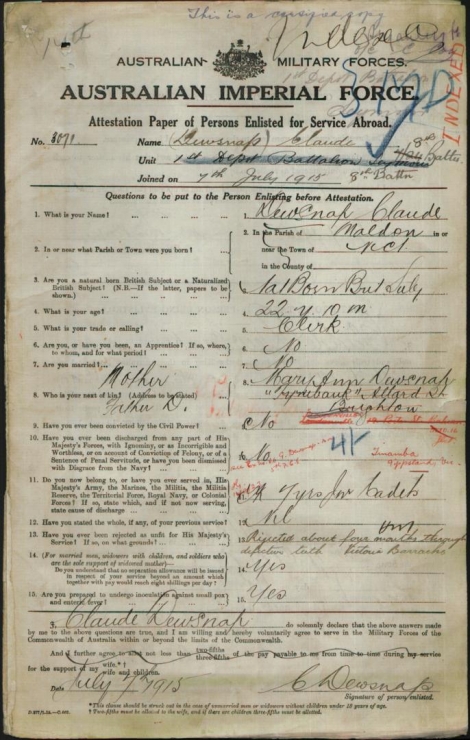 This is a certified copy
INDEXED
AUSTRALIAN MILITARY FORCES.
1st Depot Battalion
AUSTRALIAN IMPERIAL FORCE
Attestation Paper of Persons Enlisted for Service Abroad.
No. 3071 Name (Dewsnap) Claude
Unit 1st Depot Battalion Seymour
Joined on 7th July 1915 8th Battn
Questions to be put to the Person Enlisting before Attestation.
1. What is your Name? 1. Dewsnap Claude
2. In or near what Parish or Town were you born? 2. In the Parish of Maldon in or
near the Town of Vict.
in the County of
3. Are you a natural born British Subject or a Naturalized
British Subject? (N.B.—If the letter, papers to be
shown.)
3. Nat Born Brit Subj
4. What is your age? 4. 22 y 10 m
5. What is your trade or calling? 5. Clerk
6. Are you, or have you been, an Apprentice? If so, where,
to whom, and for what period?
6. No
7. Are you married? 7. No
Mother
8. Who is your next of kin? (Address to be stated) 8. Mary Ann Dewsnap
Father D.
Brighton
9. Have you ever been convicted by the Civil Power? 9. No
10. Have you ever been discharged from any part of His
Majesty's Forces, with Ignominy, or as Incorrigible and
Worthless, or on account of Conviction of Felony, or of a
Sentence of Penal Servitude, or have you been dismissed
with Disgrace from the Navy?
10. No
4/-
Gippsland, Vic.
11. Do you now belong to, or have you ever served in, His
Majesty's Army, the Marines, the Militia, the Militia
Reserve, the Territorial Force, Royal Navy, or Colonial
Forces? If so, state which, and if not now serving,
state cause of discharge
yrs Jnr Cadets
12. Have you stated the whole, if any, of your previous service? 12.
13. Have you ever been rejected as unfit for His Majesty's
Service? If so, on what grounds?
13. Rejected about four months through
defective teeth Victoria Barracks
14. (For married men, widowers with children, and soldiers who
are the sole support of widowed mother)—
Do you understand that no separation allowance will be issued
in respect of your service beyond an amount which
together with pay would reach eight shillings per day?
14. Yes
15. Are you prepared to undergo inoculation against small pox
and enteric fever?
15. Yes
I, Claude Dewsnap do solemnly declare that the above answers made
by me to the above questions are true, and I am willing and hereby voluntarily agree to serve in the Military Forces of the
Commonwealth of Australia within or beyond the limits of the Commonwealth.
And I further agree to allot not less than two-fifths
three-fifths of the pay payable to me from time to time during my service
for the support of my wife.
wife and children.
Date July 7/1915 C Dewsnap
Signature of person enlisted.
* This clause should be struck out in the case of unmarried men or widowers without children under 18 years of age.
† Two-fifths must be allotted to the wife, and if there are children three-fifths must be allotted.